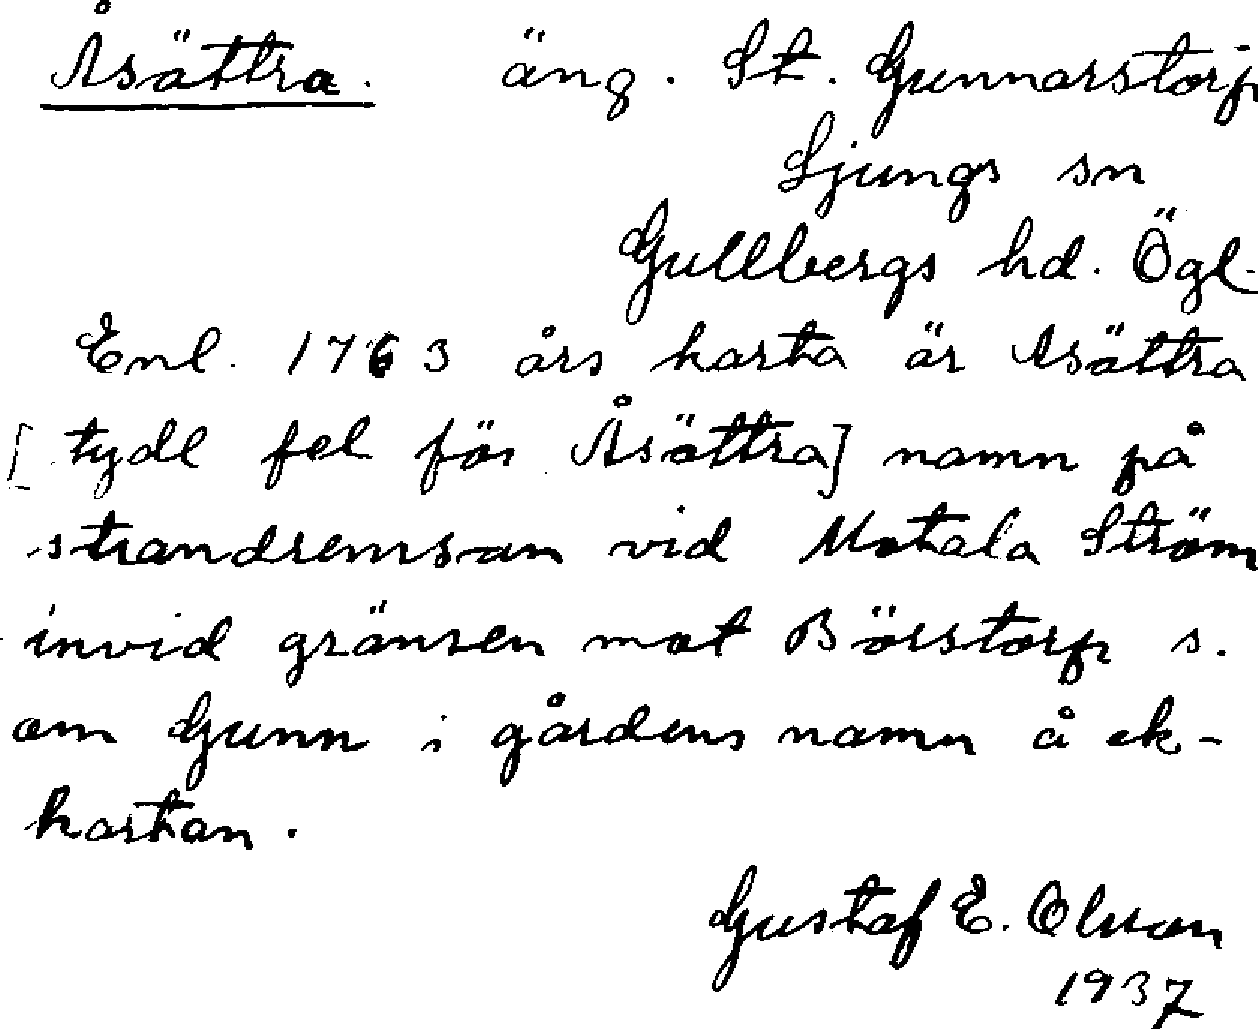 Åsättra. äng. St. Gunnarstorp
Ljungs sn
Gullbergs hd. Ögl.
Enl. 1763 års karta är Asättra
[tydl fel för Åsättra] namn på
strandremsan vid Motala Ström
invid gränsen mot Börstorp s.
om Gunn i gårdens namn å ek-
kartan.
Gustaf E. Olsson
1937